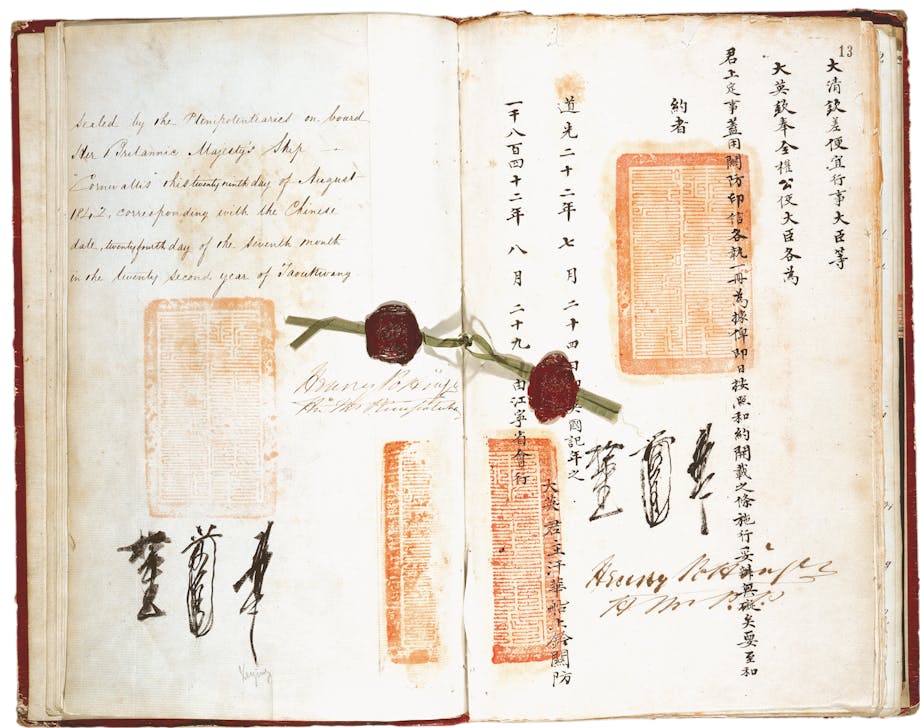 Sealed by the Plenipotentiaries on board
Her Britannic Majesty's Ship —
"Cornwallis" this twenty ninth day of August
1842, corresponding with the Chinese
date, twenty fourth day of the seventh month
in the twenty second year of Taoukwang
Henry Pottinger
13
大清欽差便宜行事大臣等
大英欽奉全權公使大臣各為
君上定事蓋用關防印信各執一冊為據俾即日按照和約開載之條施行妥辦無礙矣要至和
約者
道光二十二年七月二十四日英國記年之
一千八百四十二年八月二十九由江寧省會行
大英君主汗華船上鈐關防
Henry Pottinger